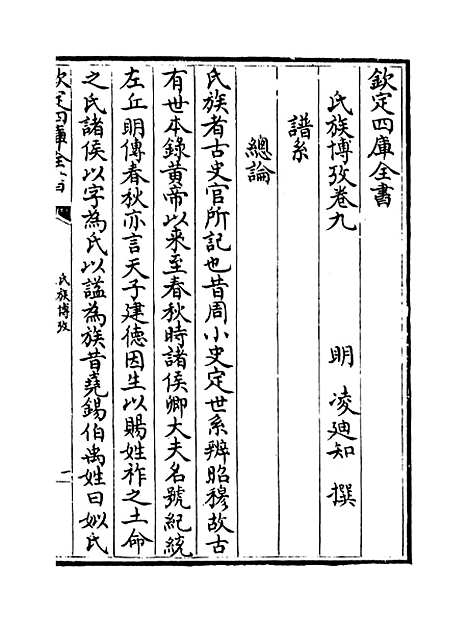 欽定四庫全書
氏族博攷卷九
明 凌廸知 撰
譜系
總論
氏族者古史官所記也昔周小史定世系辨昭穆故古
有世本錄黃帝以来至春秋時諸侯卿大夫名號紀統
左丘明傳春秋亦言天子建德因生以賜姓祚之土命
之氏諸侯以字為氏以謚為族昔堯錫伯禹姓曰姒氏
欽定四庫全書
氏族博攷